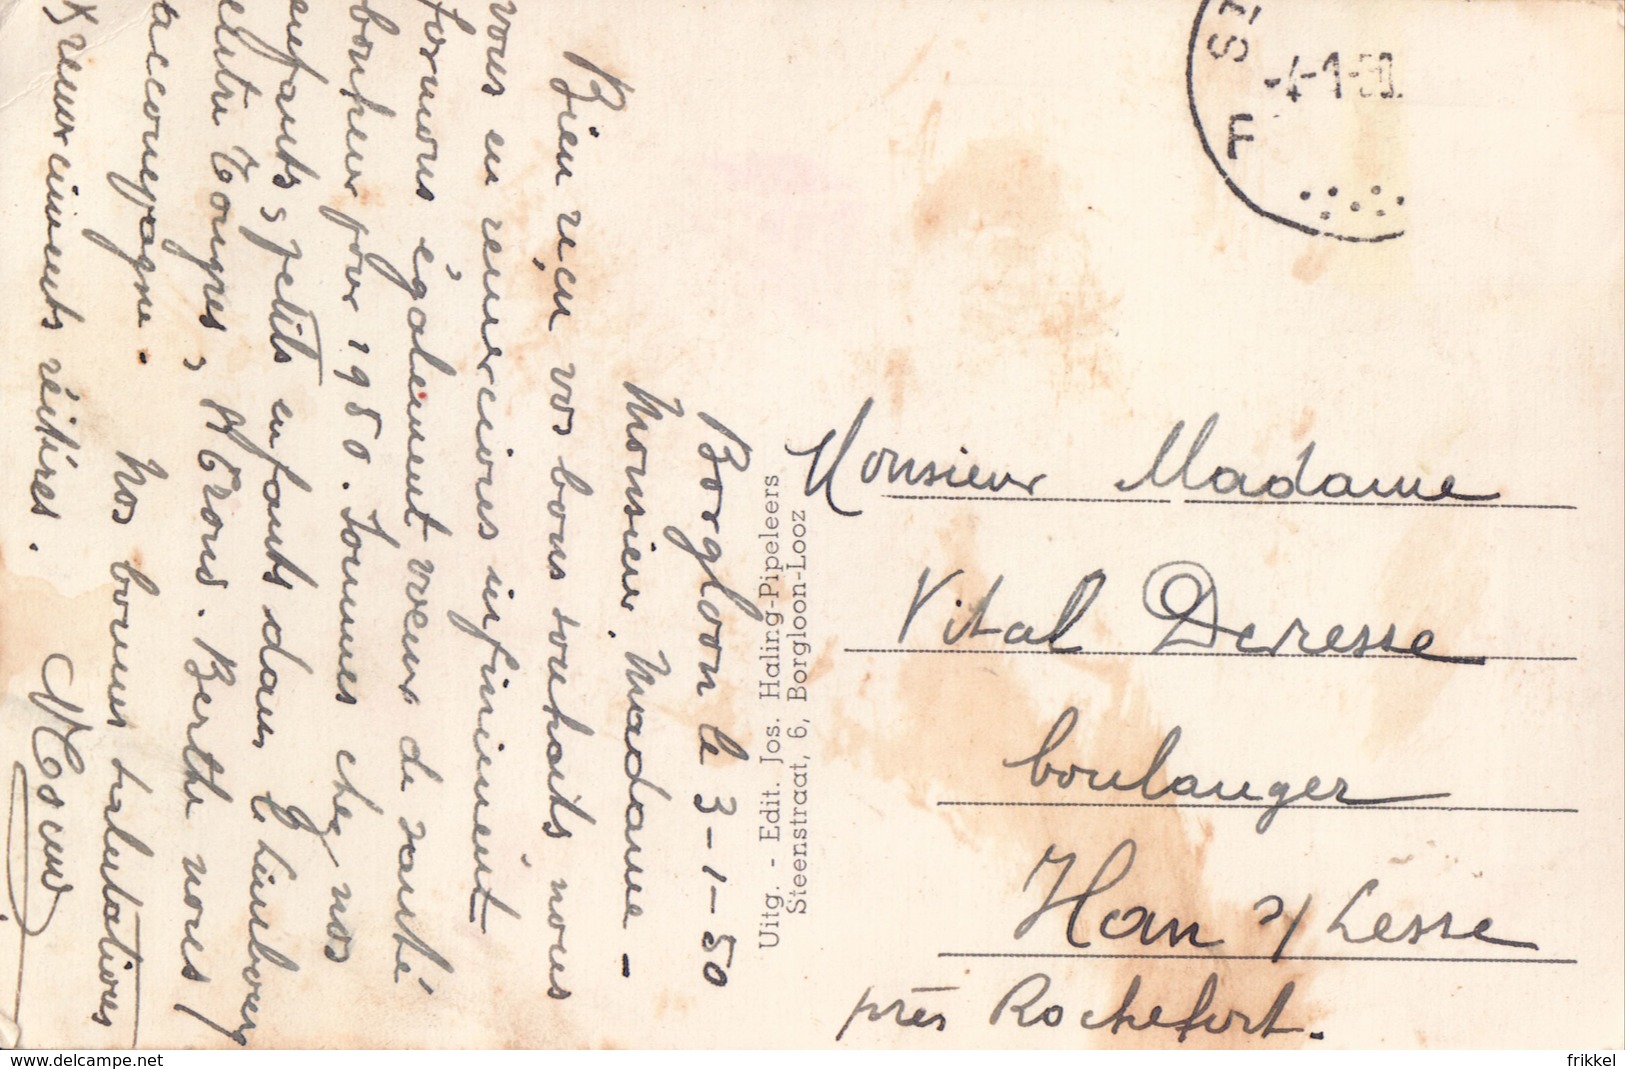 Borgloon le 3-1-50
Monsieur, Madame -
Bien reçu vos bons souhaits nous
vous en remercions infiniment
formons également voeux de santé
bonheur pour 1950. Sommes chez nos
enfants, petits enfants dans le Limbourg
entre Tongres, St Trond. Berthe nous
accompagne.
Nos bonnes salutations
& remerciements réitérés.
Uitg. - Edit. Jos. Haling-Pipeleers
Steenstraat, 6, Borgloon-Looz
F S
-4-1-50
Monsieur Madame
Vital Deresse
boulanger
Han s/ Lesse
près Rochefort.
delcampe.net
frikkel